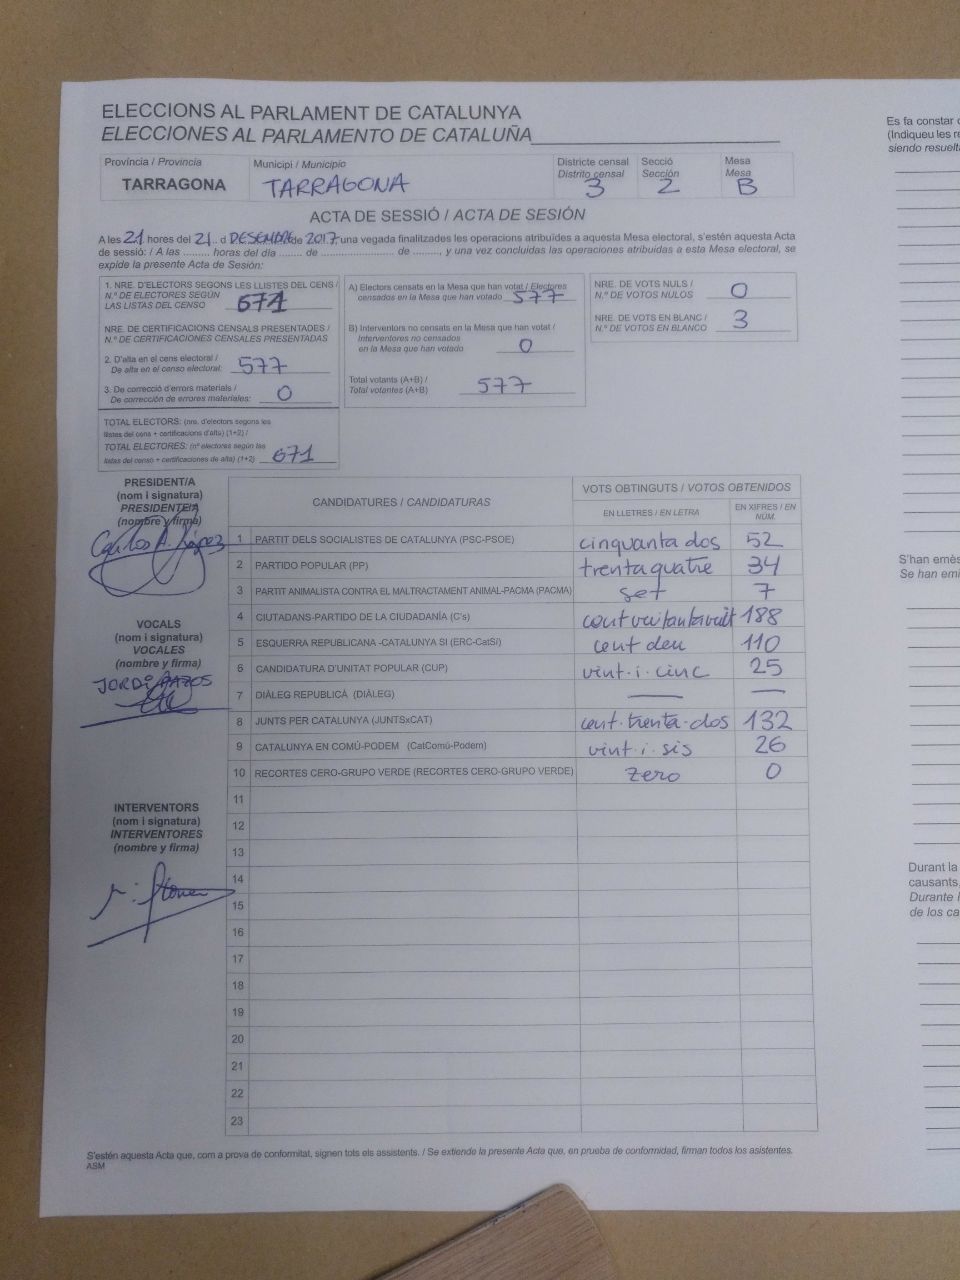 ELECCIONS AL PARLAMENT DE CATALUNYA
ELECCIONES AL PARLAMENTO DE CATALUÑA
Província / Provincia
TARRAGONA
Municipi / Municipio
TARRAGONA
Districte censal
Distrito censal
3
Secció
Sección
2
Mesa
Mesa
B
ACTA DE SESSIÓ / ACTA DE SESIÓN
A les 21 hores del 21 d DESEMBRE de 2017 una vegada finalitzades les operacions atribuïdes a aquesta Mesa electoral, s'estén aquesta Acta
de sessió: / A las ......... horas del día ........ de ......................... de ........, y una vez concluidas las operaciones atribuidas a esta Mesa electoral, se
expide la presente Acta de Sesión:
1. NRE. D'ELECTORS SEGONS LES LLISTES DEL CENS /
N.º DE ELECTORES SEGÚN
LAS LISTAS DEL CENSO 671
NRE. DE CERTIFICACIONS CENSALS PRESENTADES /
N.º DE CERTIFICACIONES CENSALES PRESENTADAS
2. D'alta en el cens electoral /
De alta en el censo electoral: 577
3. De correcció d'errors materials /
De corrección de errores materiales: 0
TOTAL ELECTORS: (nre. d'electors segons les
llistes del cens + certificacions d'alta) (1+2) /
TOTAL ELECTORES: (nº electores según las
listas del censo + certificaciones de alta) (1+2) 671
A) Electors censats en la Mesa que han votat / Electores
censados en la Mesa que han votado 577
B) Interventors no censats en la Mesa que han votat /
Interventores no censados
en la Mesa que han votado 0
Total votants (A+B) /
Total votantes (A+B) 577
NRE. DE VOTS NULS /
N.º DE VOTOS NULOS 0
NRE. DE VOTS EN BLANC /
N.º DE VOTOS EN BLANCO 3
PRESIDENT/A
(nom i signatura)
PRESIDENTE/A
(nombre y firma)
Carlos A. López
VOCALS
(nom i signatura)
VOCALES
(nombre y firma)
JORDI PAZOS
INTERVENTORS
(nom i signatura)
INTERVENTORES
(nombre y firma)
CANDIDATURES / CANDIDATURAS
VOTS OBTINGUTS / VOTOS OBTENIDOS
EN LLETRES / EN LETRA
EN XIFRES / EN
NÚM.
1 PARTIT DELS SOCIALISTES DE CATALUNYA (PSC-PSOE) cinquanta dos 52
2 PARTIDO POPULAR (PP) trenta quatre 34
3 PARTIT ANIMALISTA CONTRA EL MALTRACTAMENT ANIMAL-PACMA (PACMA) set 7
4 CIUTADANS-PARTIDO DE LA CIUDADANÍA (C's) cent vuitanta vuit 188
5 ESQUERRA REPUBLICANA -CATALUNYA SI (ERC-CatSí) cent deu 110
6 CANDIDATURA D'UNITAT POPULAR (CUP) vint·i·cinc 25
7 DIÀLEG REPUBLICÀ (DIÀLEG) — —
8 JUNTS PER CATALUNYA (JUNTSxCAT) cent·trenta·dos 132
9 CATALUNYA EN COMÚ-PODEM (CatComú-Podem) vint·i·sis 26
10 RECORTES CERO-GRUPO VERDE (RECORTES CERO-GRUPO VERDE) zero 0
11
12
13
14
15
16
17
18
19
20
21
22
23
S'estén aquesta Acta que, com a prova de conformitat, signen tots els assistents. / Se extiende la presente Acta que, en prueba de conformidad, firman todos los asistentes.
ASM
Es fa constar
(Indiqueu les
siendo resuelt
S'han emès
Se han emi
Durant la
causants,
Durante
de los ca